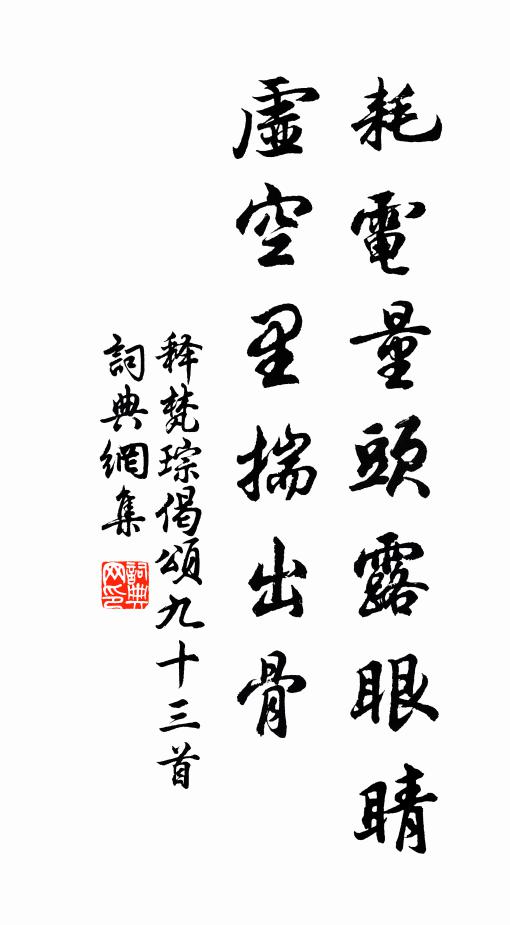 耗電量頭露眼睛
虛空里揣出骨
釋梵琮偈頌九十三首
詞典網集
詞典網印